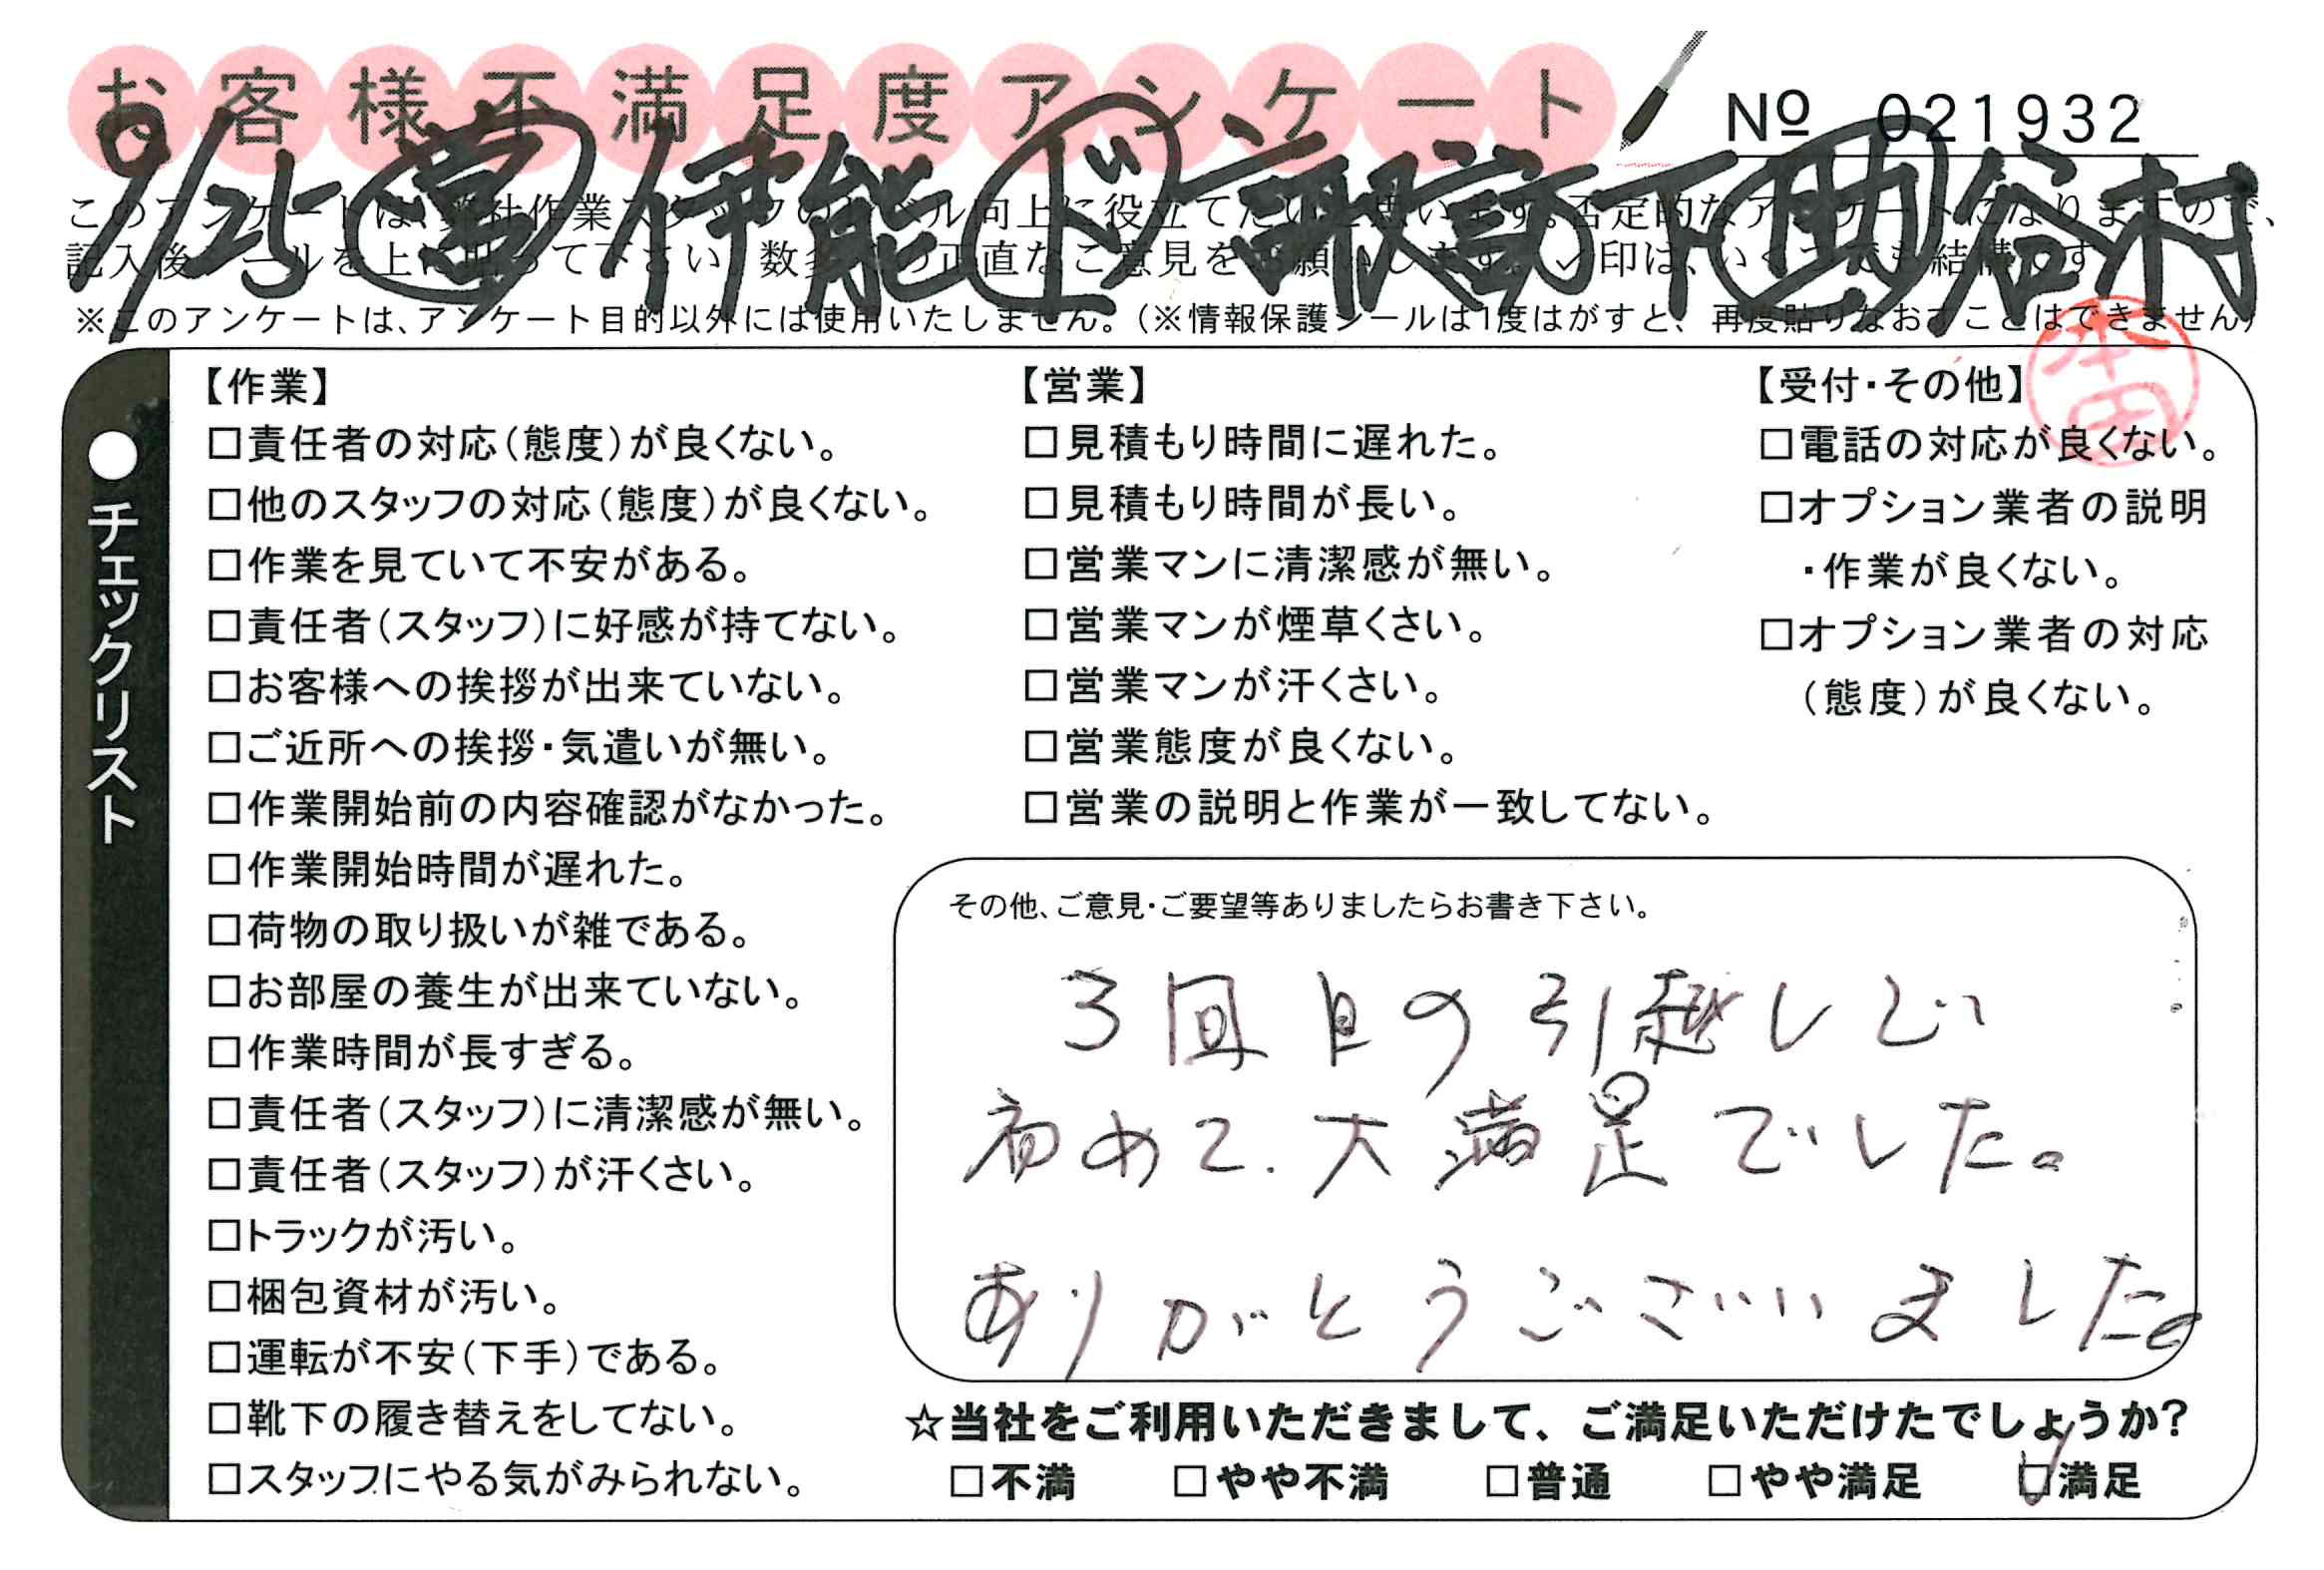 お客様不満足度アンケート
Nº 021932
9/25 営 伊能 ド 諏訪下 助 谷村
このアンケートは、弊社作業スタッフのレベル向上に役立てたいと思います。否定的なアンケートになりますので、
記入後シールを上に貼って下さい。数多くの正直なご意見をお願いします。✓印は、いくつでも結構です
※このアンケートは、アンケート目的以外には使用いたしません。(※情報保護シールは1度はがすと、再度貼りなおすことはできません)
本田
●チェックリスト
【作業】
□責任者の対応(態度)が良くない。
□他のスタッフの対応(態度)が良くない。
□作業を見ていて不安がある。
□責任者(スタッフ)に好感が持てない。
□お客様への挨拶が出来ていない。
□ご近所への挨拶・気遣いが無い。
□作業開始前の内容確認がなかった。
□作業開始時間が遅れた。
□荷物の取り扱いが雑である。
□お部屋の養生が出来ていない。
□作業時間が長すぎる。
□責任者(スタッフ)に清潔感が無い。
□責任者(スタッフ)が汗くさい。
□トラックが汚い。
□梱包資材が汚い。
□運転が不安(下手)である。
□靴下の履き替えをしてない。
□スタッフにやる気がみられない。
【営業】
□見積もり時間に遅れた。
□見積もり時間が長い。
□営業マンに清潔感が無い。
□営業マンが煙草くさい。
□営業マンが汗くさい。
□営業態度が良くない。
□営業の説明と作業が一致してない。
【受付・その他】
□電話の対応が良くない。
□オプション業者の説明
・作業が良くない。
□オプション業者の対応
(態度)が良くない。
その他、ご意見・ご要望等ありましたらお書き下さい。
3回目の引越しで
初めて、大満足でした。
ありがとうございました。
☆当社をご利用いただきまして、ご満足いただけたでしょうか?
□不満 □やや不満 □普通 □やや満足 ☑満足